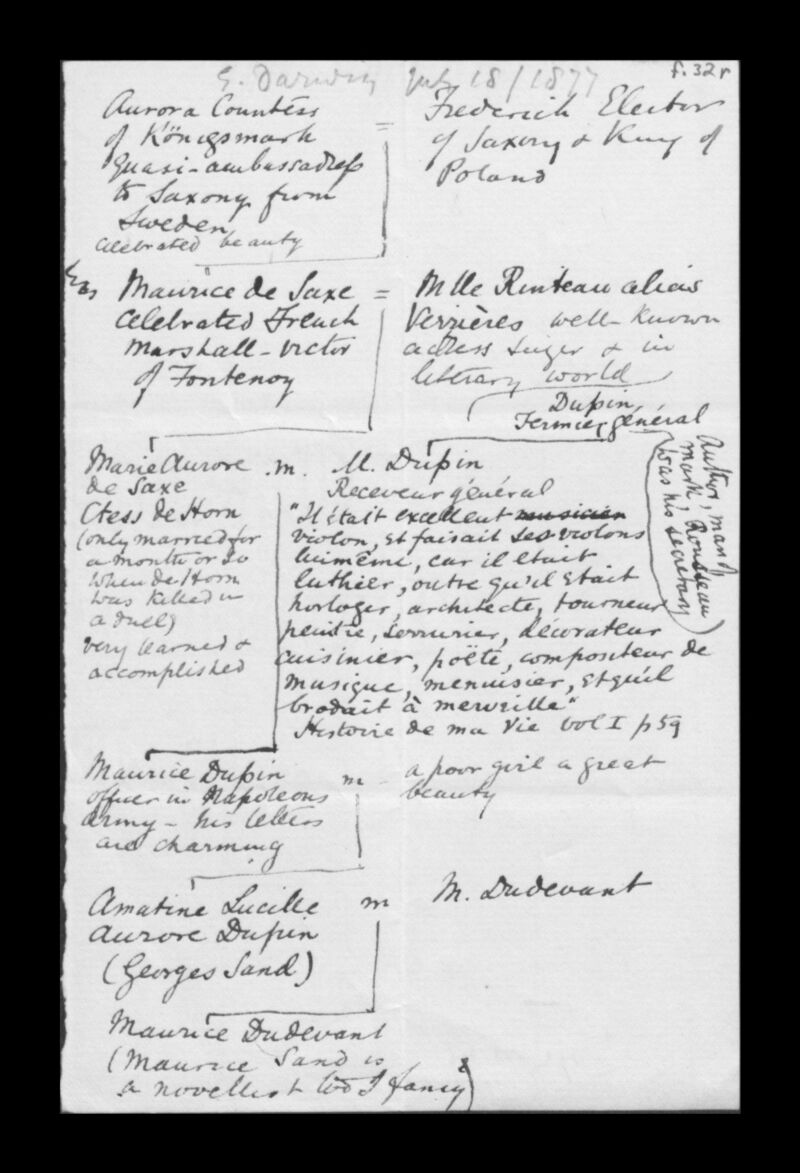 f. 32r
G. Darwin July 18/1877
Aurora Countess
of Königsmark
quasi-ambassadress
to Saxony from
Sweden
celebrated beauty
=
Frederick Elector
of Saxony & King of
Poland
Maurice de Saxe =
celebrated French
Marshall - victor
of Fontenoy
Mlle Rinteau alias
Verrières well-known
actress singer & in
literary world
Dupin
Fermier, général
Author, man of
mark, Rousseau
was his secretary)
Marie Aurore .m.
de Saxe
Ctess de Horn
(only married for
a month or so
when de Horn
was killed in
a duel)
very learned &
accomplished
M. Dupin
Receveur général
"Il était excellent musicien
violon, et faisait ses violons
luimême, car il était
luthier, outre qu'il était
horloger, architecte, tourneur
peintre, serrurier, décorateur
cuisinier, poëte, compositeur de
musique, menuisier, et qu'il
brodait à merveille"
Histoire de ma Vie vol I p59
Maurice Dupin m
officer in Napoleons
army - his letters
are charming
a poor girl a great
beauty
Amatine Lucille m M. Dudevant
Aurore Dupin
(Georges Sand)
Maurice Dudevant
(Maurice Sand is
a novellist too I fancy)